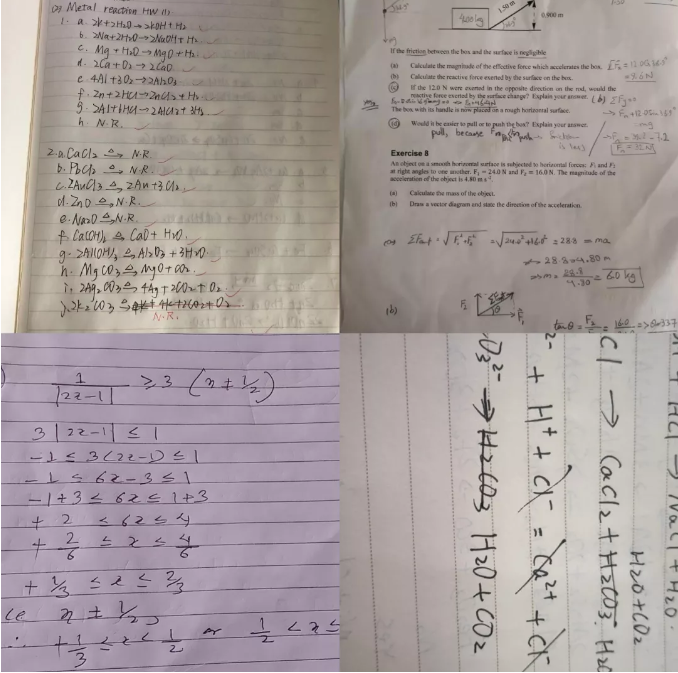 03 Metal reaction HW (1)
1. a. 2K+2H2O→2KOH+H2
b. 2Na+2H2O→2NaOH+H2
c. Mg+H2O→MgO+H2
d. 2Ca+O2→2CaO
e. 4Al+3O2→2Al2O3
f. Zn+2HCl→ZnCl2+H2
g. 2Al+6HCl→2AlCl3+3H2
h. N.R.
2. a. CaCl2 △→ N.R.
b. PbCl2 △→ N.R.
c. 2AuCl3 △→ 2Au+3Cl2
d. ZnO △→ N.R.
e. Na2O △→ N.R.
f. Ca(OH)2 △→ CaO+H2O.
g. 2Al(OH)3 △→ Al2O3+3H2O.
h. MgCO3 △→ MgO+CO2.
i. 2Ag2CO3 △→ 4Ag+2CO2+O2.
j. 2K2CO3 △→ 4K+2CO2+O2
N.R.
1.50 m
400 kg
0.900 m
If the friction between the box and the surface is negligible
(a) Calculate the magnitude of the effective force which accelerates the box.
(b) Calculate the reactive force exerted by the surface on the box.
(c) If the 12.0 N were exerted in the opposite direction on the rod, would the
reactive force exerted by the surface change? Explain your answer.
The box with its handle is now placed on a rough horizontal surface.
(d) Would it be easier to pull or to push the box? Explain your answer.
pull, because
Exercise 8
An object on a smooth horizontal surface is subjected to horizontal forces F1 and F2
at right angles to one another. F1 = 24.0 N and F2 = 16.0 N. The magnitude of the
acceleration of the object is 4.80 m s-2.
(a) Calculate the mass of the object.
(b) Draw a vector diagram and state the direction of the acceleration.
(a) = √F1²+F2² = √24.0²+16.0² = 28.8 = ma
⇒ 28.8=4.80m
⇒ m = 28.8/4.80 = 6.0 kg
(b) F2 θ F1
tanθ = F2/F1 = 16.0
1/|2x-1| ≥ 3 (x ≠ 1/2)
3|2x-1| ≤ 1
-1 ≤ 3(2x-1) ≤ 1
-1 ≤ 6x-3 ≤ 1
-1+3 ≤ 6x ≤ 1+3
+ 2 ≤ 6x ≤ 4
+ 2/6 ≤ x ≤ 4/6
+ 1/3 ≤ x ≤ 2/3
ie x ≠ 1/2,
∴ +1/3 ≤ x < 1/2 or 1/2 < x ≤
HCl → NaCl + H2O.
H2O+CO2
Cl → CaCl2 + H2CO3. H2O
2- + H+ + Cl- = Ca2+ + Cl-
O3 2- → H2CO3 H2O + CO2